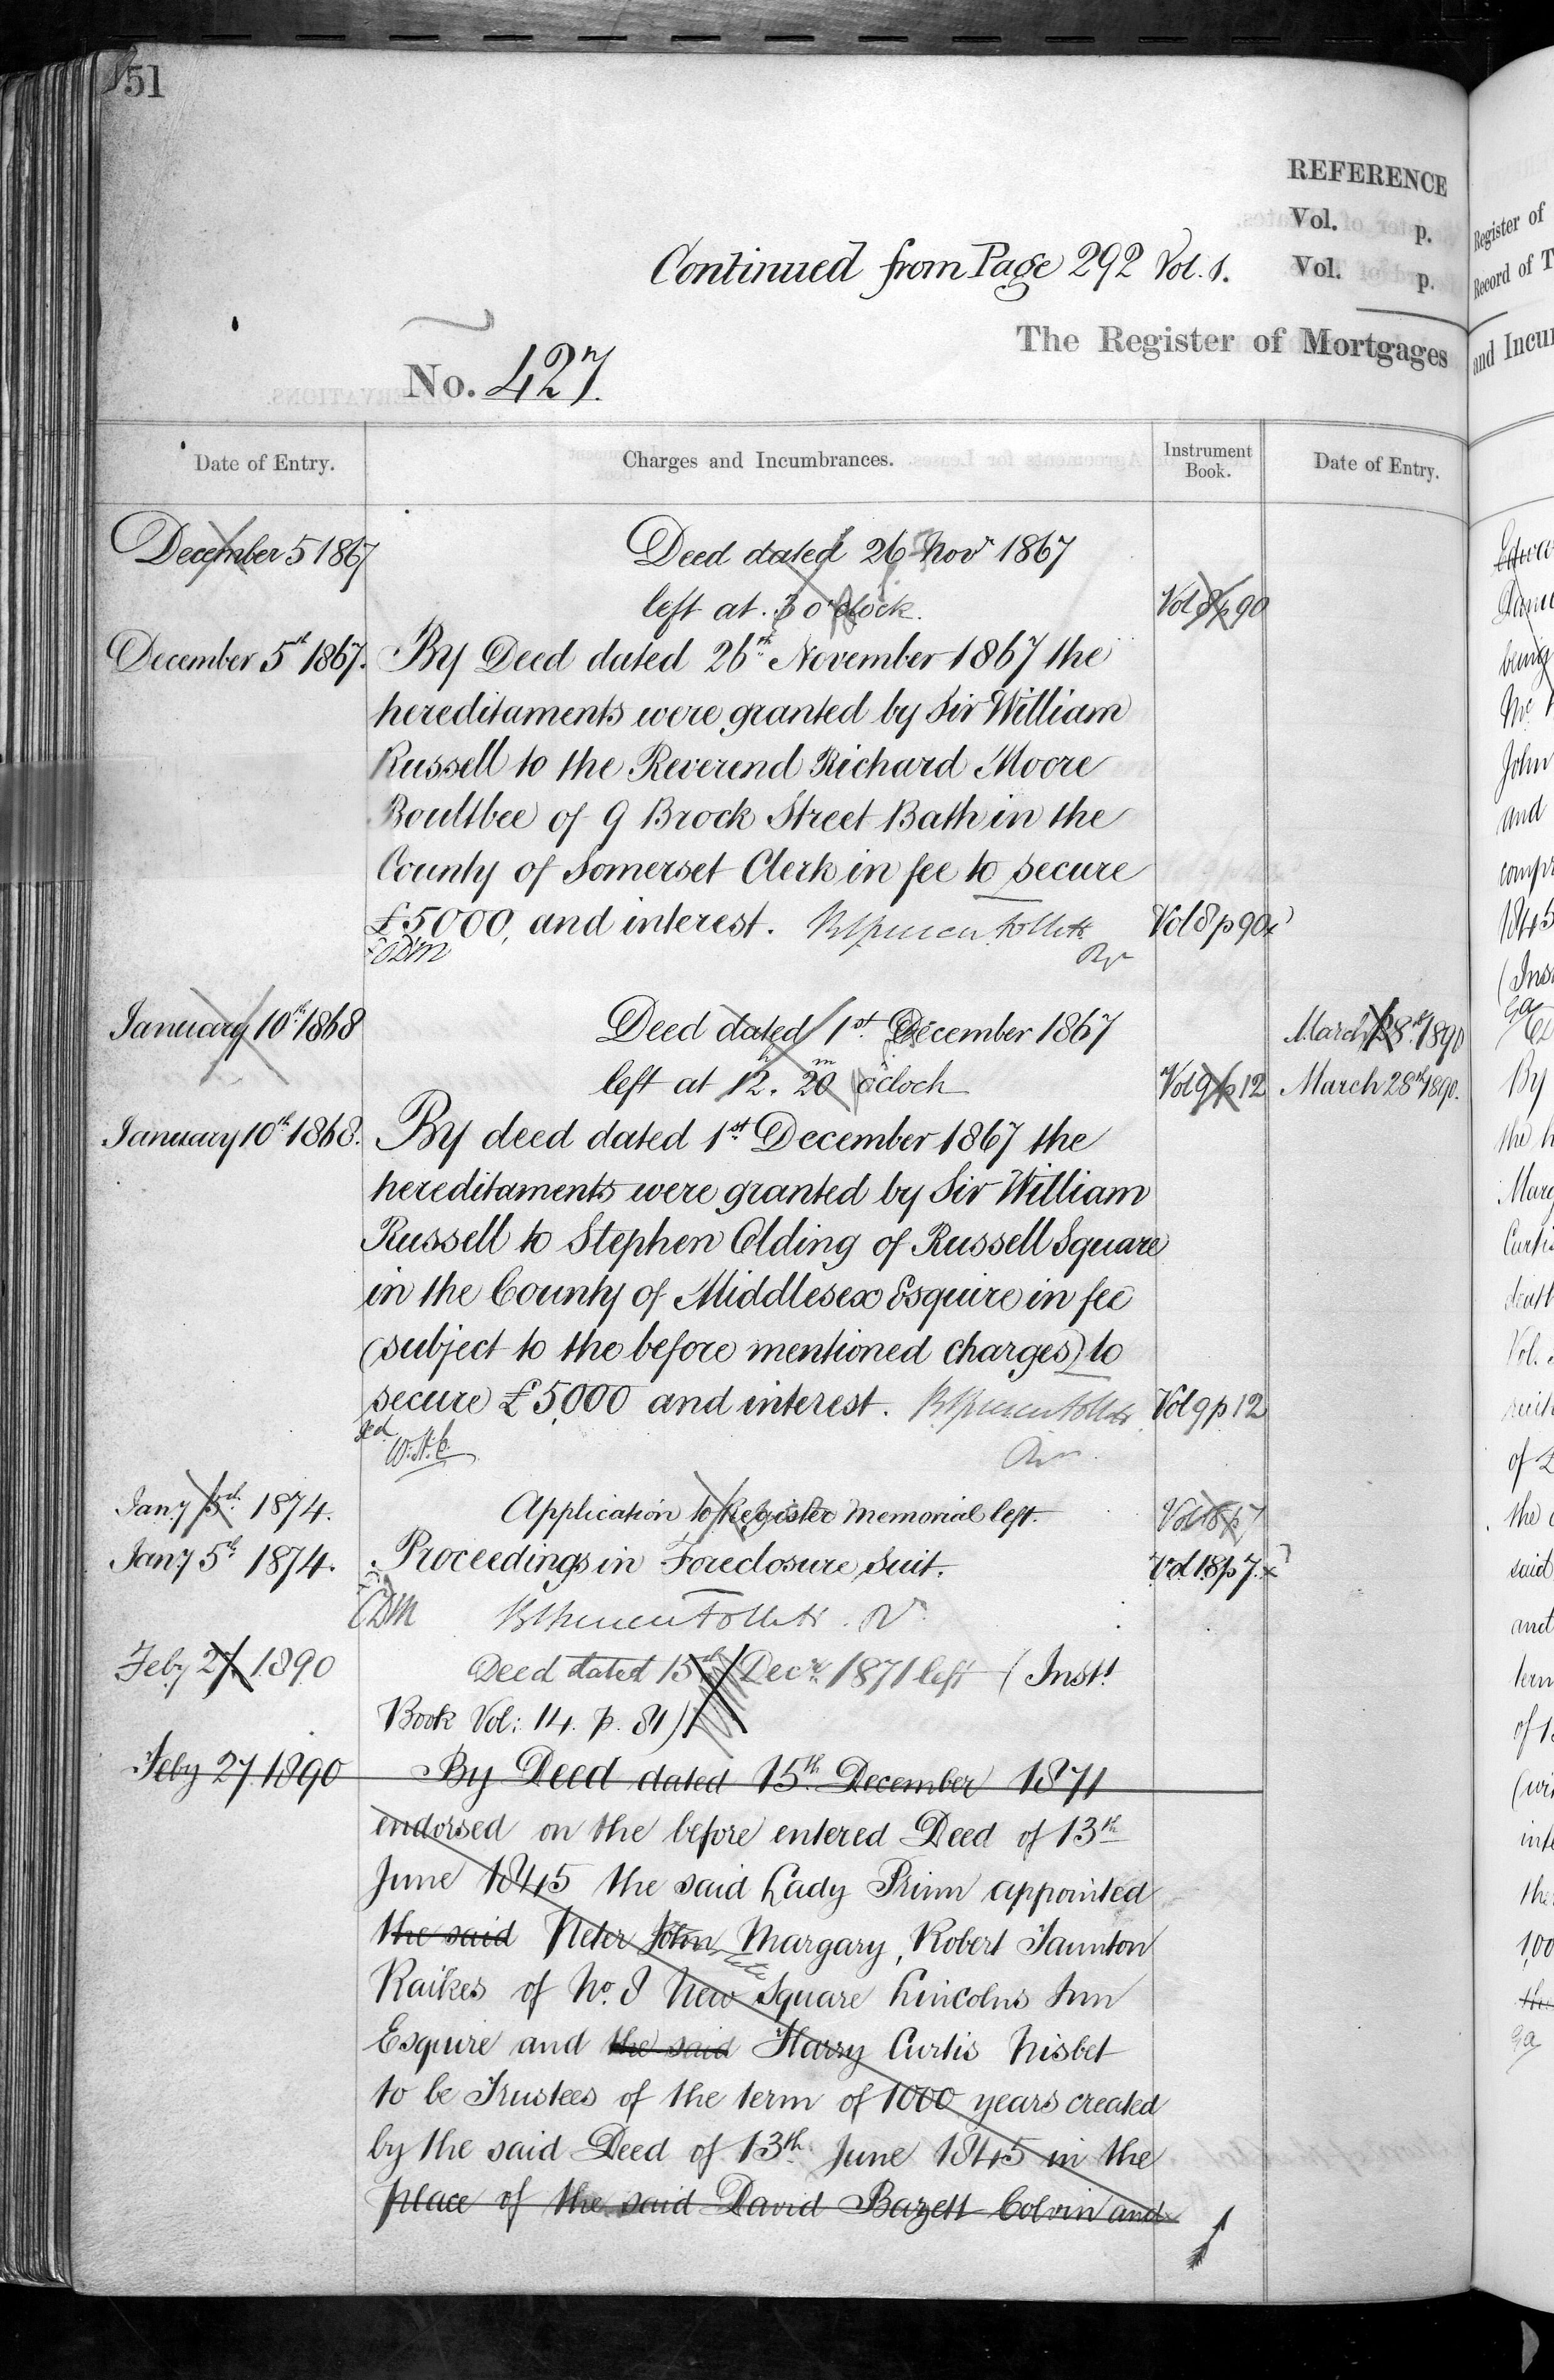 51
REFERENCE
Vol. p.
Continued from Page 292 Vol. 1.
Vol. p.
The Register of Mortgages
No. 427.
Date of Entry. Charges and Incumbrances. Instrument Book. Date of Entry.
December 5 1867 Deed dated 26 Novr 1867
left at 3 o'clock. Vol 8 p 90
December 5th 1867. By Deed dated 26th November 1867 the
hereditaments were granted by Sir William
Russell to the Reverend Richard Moore
Boultbee of 9 Brock Street Bath in the
County of Somerset Clerk in fee to secure
£5000, and interest. Vol 8 p 90
January 10th 1868 Deed dated 1st December 1867 March 28th 1890
left at 12h. 20m o'clock Vol 9 p 12 March 28th 1890.
January 10th 1868. By deed dated 1st December 1867 the
hereditaments were granted by Sir William
Russell to Stephen Olding of Russell Square
in the County of Middlesex Esquire in fee
(subject to the before mentioned charges) to
secure £5000 and interest. Vol 9 p 12
Jany 5th 1874. Application to Register Memorial left. Vol 18 p 7
Jany 5th 1874. Proceedings in Foreclosure Suit. Vol 18 p 7
Feby 27. 1890 Deed dated 15th Decr. 1871 left (Inst
Book Vol: 14. p. 81)
Feby 27. 1890 By Deed dated 15th December 1871
endorsed on the before entered Deed of 13th
June 1845 the said Lady Prinn appointed
the said Peter John Margary, Robert Taunton
Raikes of No. 8 New Square Lincolns Inn
Esquire and the said Harry Curtis Nisbet
to be Trustees of the term of 1000 years created
by the said Deed of 13th June 1845 in the
place of the said David Bazett Colvin and
Register of
Record of T
and Incu